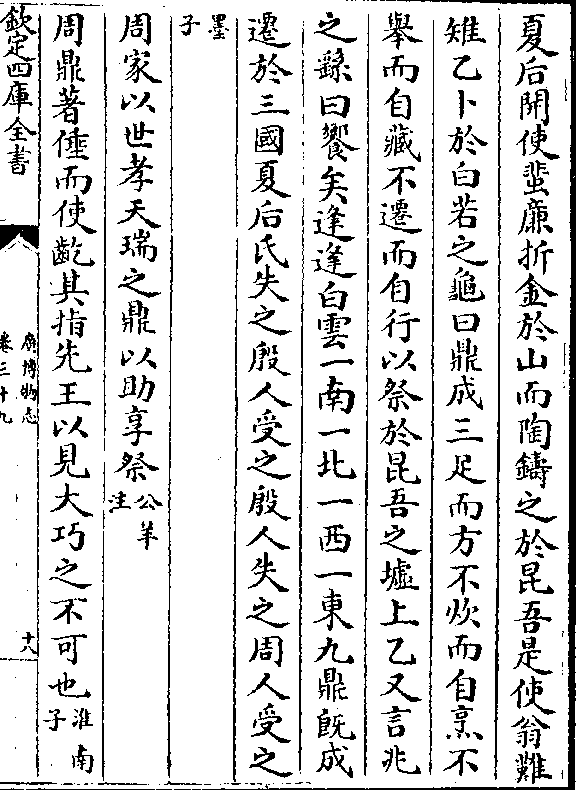 夏后開使蜚廉折金於山而陶鑄之於昆吾是使翁難
雉乙卜於白若之龜曰鼎成三足而方不炊而自烹不
舉而自藏不遷而自行以祭於昆吾之墟上乙又言兆
之繇曰饗矣逢逢白雲一南一北一西一東九鼎旣成
遷於三國夏后氏失之殷人受之殷人失之周人受之
墨子
周家以世孝天瑞之鼎以助享祭公羊注
周鼎著倕而使齕其指先王以見大巧之不可也淮南子
欽定四庫全書
廣博物志
卷三十九
十八